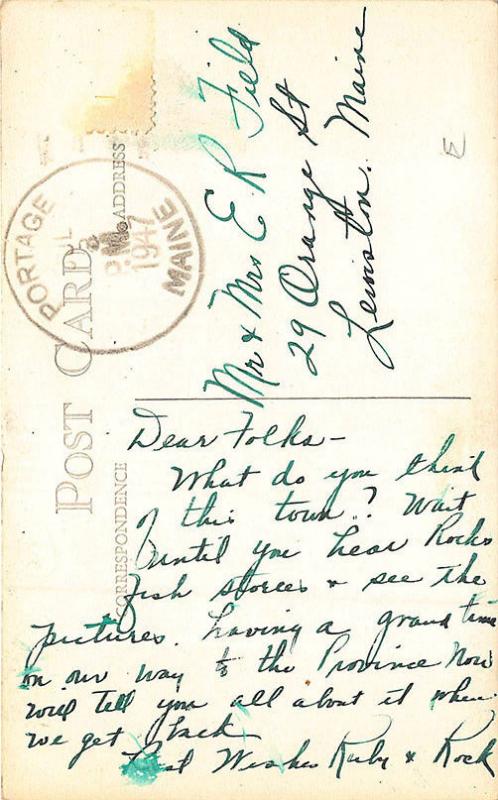 POST CARD
CORRESPONDENCE
ADDRESS
PORTAGE
JUL
8
PM
1947
MAINE
Mr & Mrs E R Field
29 Orange St
Lewiston. Maine
E
Dear Folks –
What do you think
of this town? Wait
until you hear Rocks
fish stories & see the
pictures. having a grand time
on our way to the Province Now
will tell you all about it when
we get back
Best Wishes Ruby & Rock